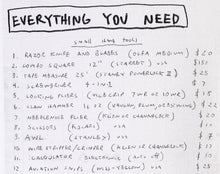 EVERYTHING YOU NEED
SMALL HAND TOOLS
1. RAZOR KNIFE AND BLADES (OLFA MEDIUM) $20
2. COMBO SQUARE 12" (STARRET) $150
3. TAPE MEASURE 25' (STANLEY POWERLOCK II) $25
4. SCREWDRIVER 4-IN-1 $7
5. LOCKING PLIERS (VISEGRIP 7WR OR 10WR) $15
6. CLAW HAMMER 16 OZ (VAUGHN, PLUMB, OR ESTWING) $22
7. NEEDLENOSE PLIER (KLEIN OR CHANNELLOCK) $20
8. SCISSORS $
9. AWL (STANLEY) $
10. WIRE STRIPPER/CRIMPER (KLEIN OR CHANNELLOCK) $
11. CALCULATOR $10
12. AVIATION SNIPS $